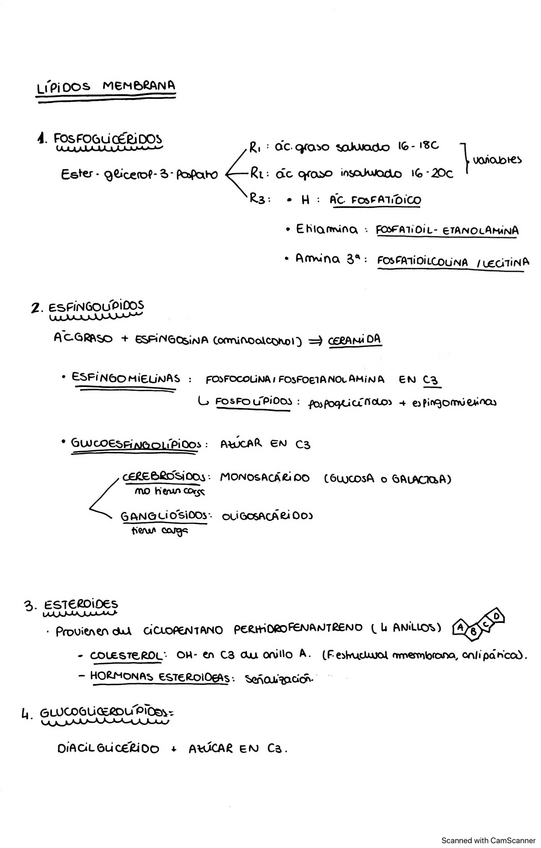 LÍPIDOS MEMBRANA
1. FOSFOGLICÉRIDOS
R1: ác. graso saturado 16-18C
Ester-glicerol-3-fosfato
R2: ác graso insaturado 16-20C
variables
R3: • H : ÁC FOSFATÍDICO
• Etilamina : FOSFATIDIL-ETANOLAMINA
• Amina 3ª: FOSFATIDILCOLINA / LECITINA
2. ESFINGOLÍPIDOS
ÁC GRASO + ESFINGOSINA (aminoalcohol) ⇒ CERAMIDA
• ESFINGOMIELINAS : FOSFOCOLINA / FOSFOETANOLAMINA EN C3
↳ FOSFOLÍPIDOS : fosfoglicéridos + esfingomielinas
• GLUCOESFINGOLÍPIDOS: AZÚCAR EN C3
CEREBRÓSIDOS: MONOSACÁRIDO (GLUCOSA o GALACTOSA)
no tienen carga
GANGLIÓSIDOS: OLIGOSACÁRIDOS
tienen carga
3. ESTEROIDES
• Provienen del CICLOPENTANO PERHIDROFENANTRENO (4 ANILLOS) A B C D
- COLESTEROL: OH- en C3 del anillo A. (F. estructural membrana, anfipática).
- HORMONAS ESTEROIDEAS: Señalización.
4. GLUCOGLICEROLÍPIDOS:
DIACILGLICÉRIDO + AZÚCAR EN C3.
Scanned with CamScanner